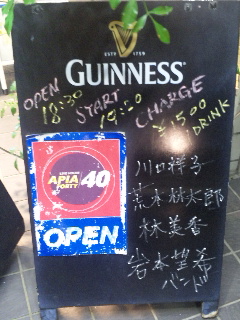 ESTD 1759
GUINNESS
OPEN
18:30
START
19:20
CHARGE
¥1500
+DRINK
LIVE HOUSE
APIA
FORTY
40
OPEN
川口祥子
荒木林太郎
林美香
岩本望希
バンド